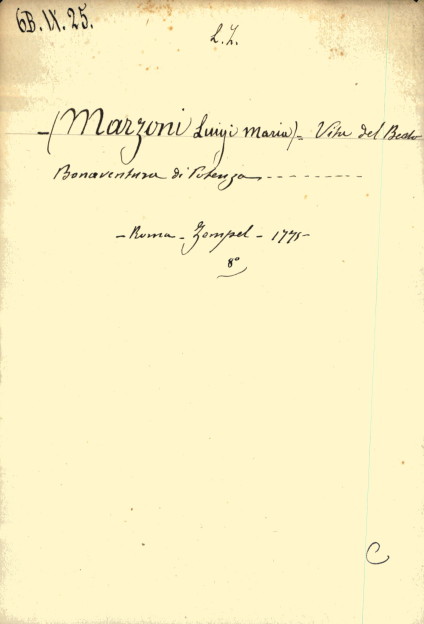 6B.IX.25.
L.Z.
-(Marzoni Luigi Maria)= Vita del Beato
Bonaventura di Potenza ---------
- Roma - Zempel - 1775-
8°
C